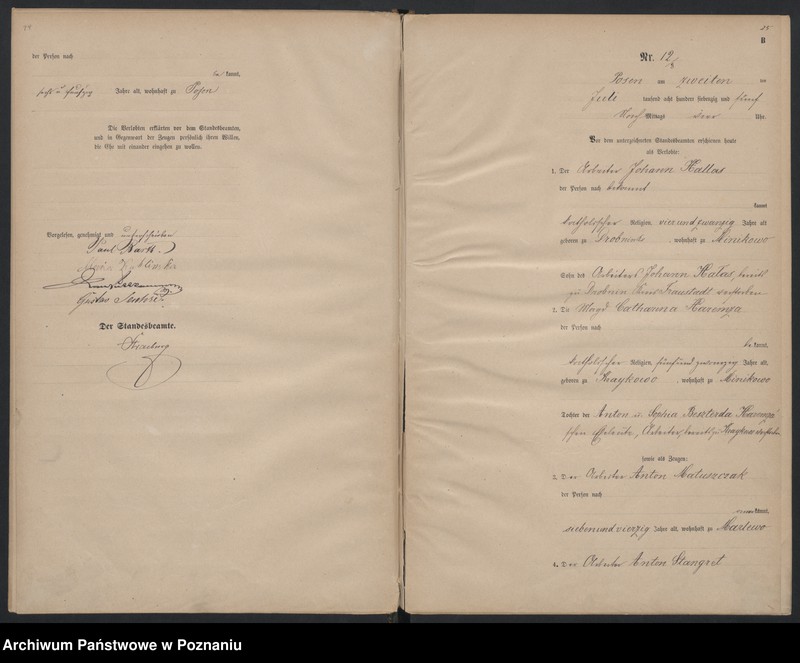 der Person nach
be kannt,
sechs u. fünfzig Jahre alt, wohnhaft zu Posen
Die Verlobten erklärten vor dem Standesbeamten,
und in Gegenwart der Zeugen persönlich ihren Willen,
die Ehe mit einander eingehen zu wollen.
Vorgelesen, genehmigt und unterschrieben
Paul
Gustav
Der Standesbeamte.
25
B
Nr. 12
Posen am zweiten
tausend acht hundert siebenzig und fünf
Vor Mittags Uhr.
Vor dem unterzeichneten Standesbeamten erschienen heute
als Verlobte:
1. Der Arbeiter Johann Kallas
der Person nach bekannt
kannt
katholischer Religion, vierundzwanzig Jahre alt
geboren zu , wohnhaft zu Minikowo
Sohn des Arbeiters Johann Kalas, bereits
zu Kreis Fraustadt verstorben
2. Die Magd Catharina
der Person nach
be kannt,
katholischer Religion, fünfundzwanzig Jahre alt,
geboren zu Kraykowo , wohnhaft zu Minikowo
Tochter der Anton u. Sophia
Eheleute, Arbeiter, bereits zu verstorben
sowie als Zeugen:
3. Der Arbeiter Anton Matuszczak
der Person nach
kannt,
siebenundvierzig Jahre alt, wohnhaft zu Marlewo
4. Der Arbeiter Anton Stangret
Archiwum Państwowe w Poznaniu